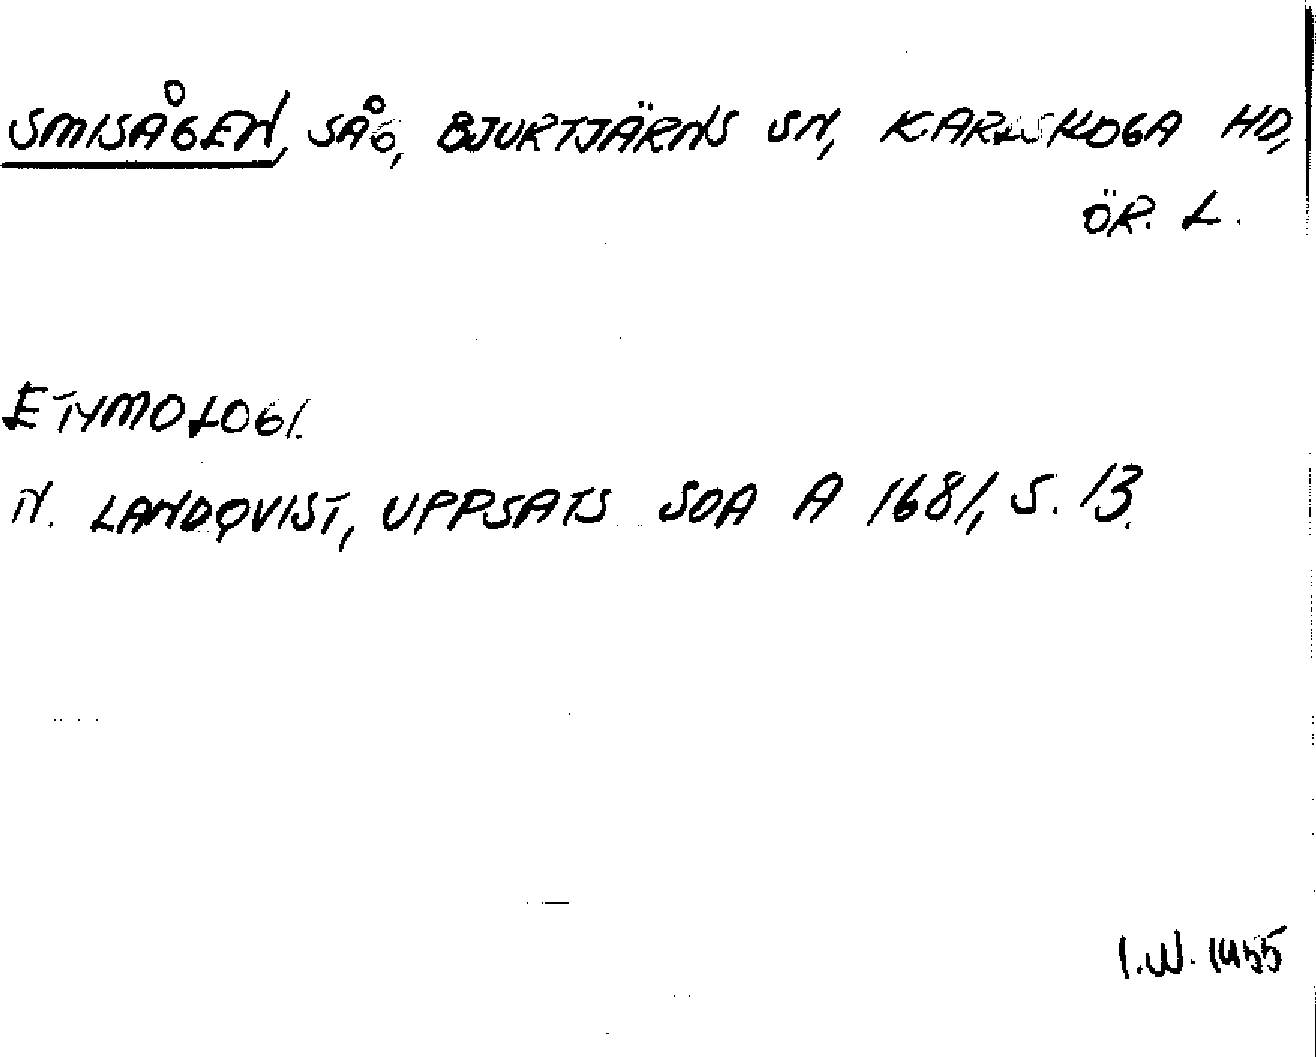 SMISÅGEN, SÅG, BJURTJÄRNS SN, KARLSKOGA HD,
ÖR. L.
ETYMOLOGI.
N. LANDQVIST, UPPSATS SOA A 1681, S. 13.
I.W. 1955